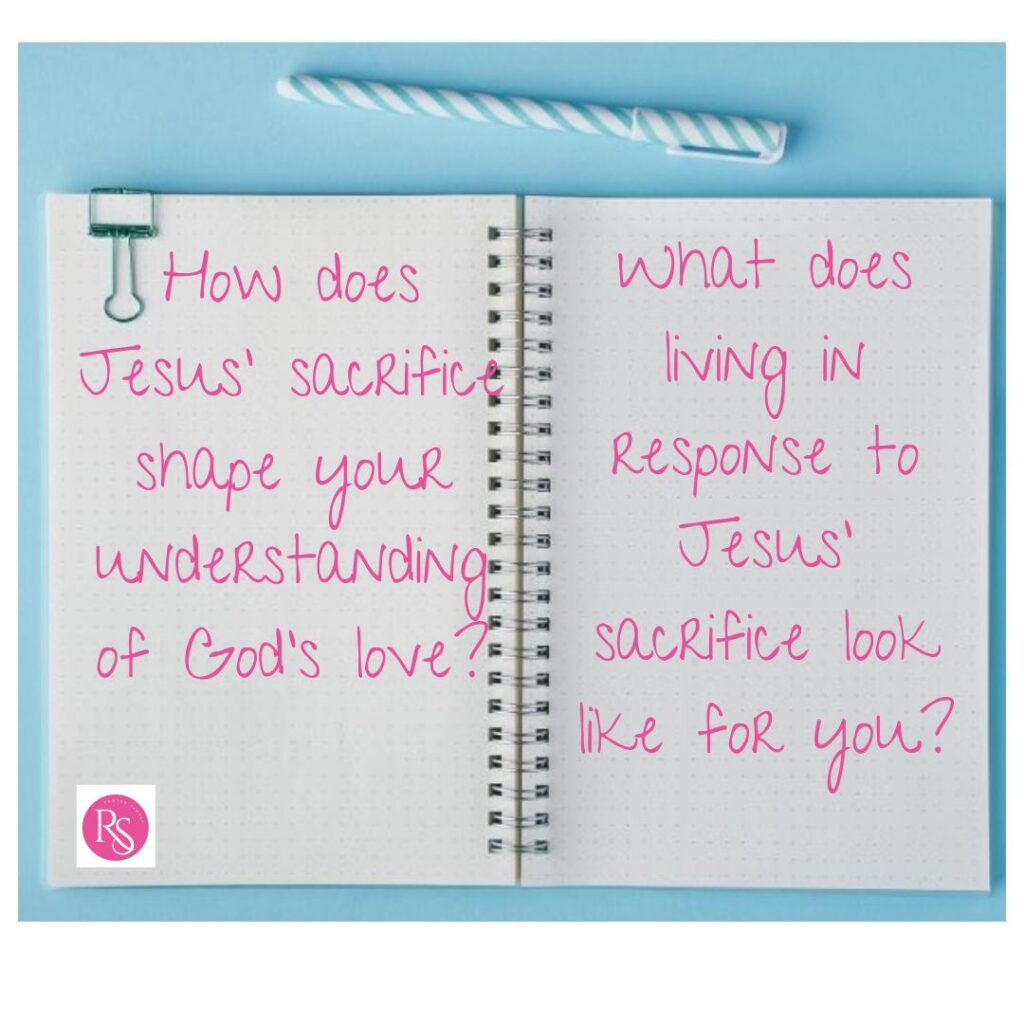 How does
Jesus' sacrifice
shape your
understanding
of God's love?
What does
living in
response to
Jesus'
sacrifice look
like for you?
RS